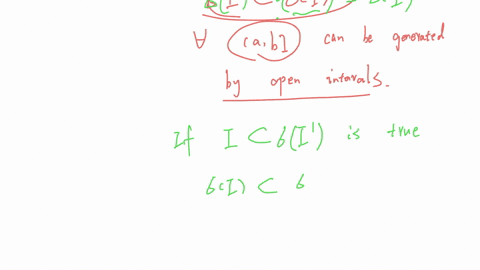 ∀ (a, b] can be generated
by open intervals.
If I ⊂ б(I') is true
б(I) ⊂ б